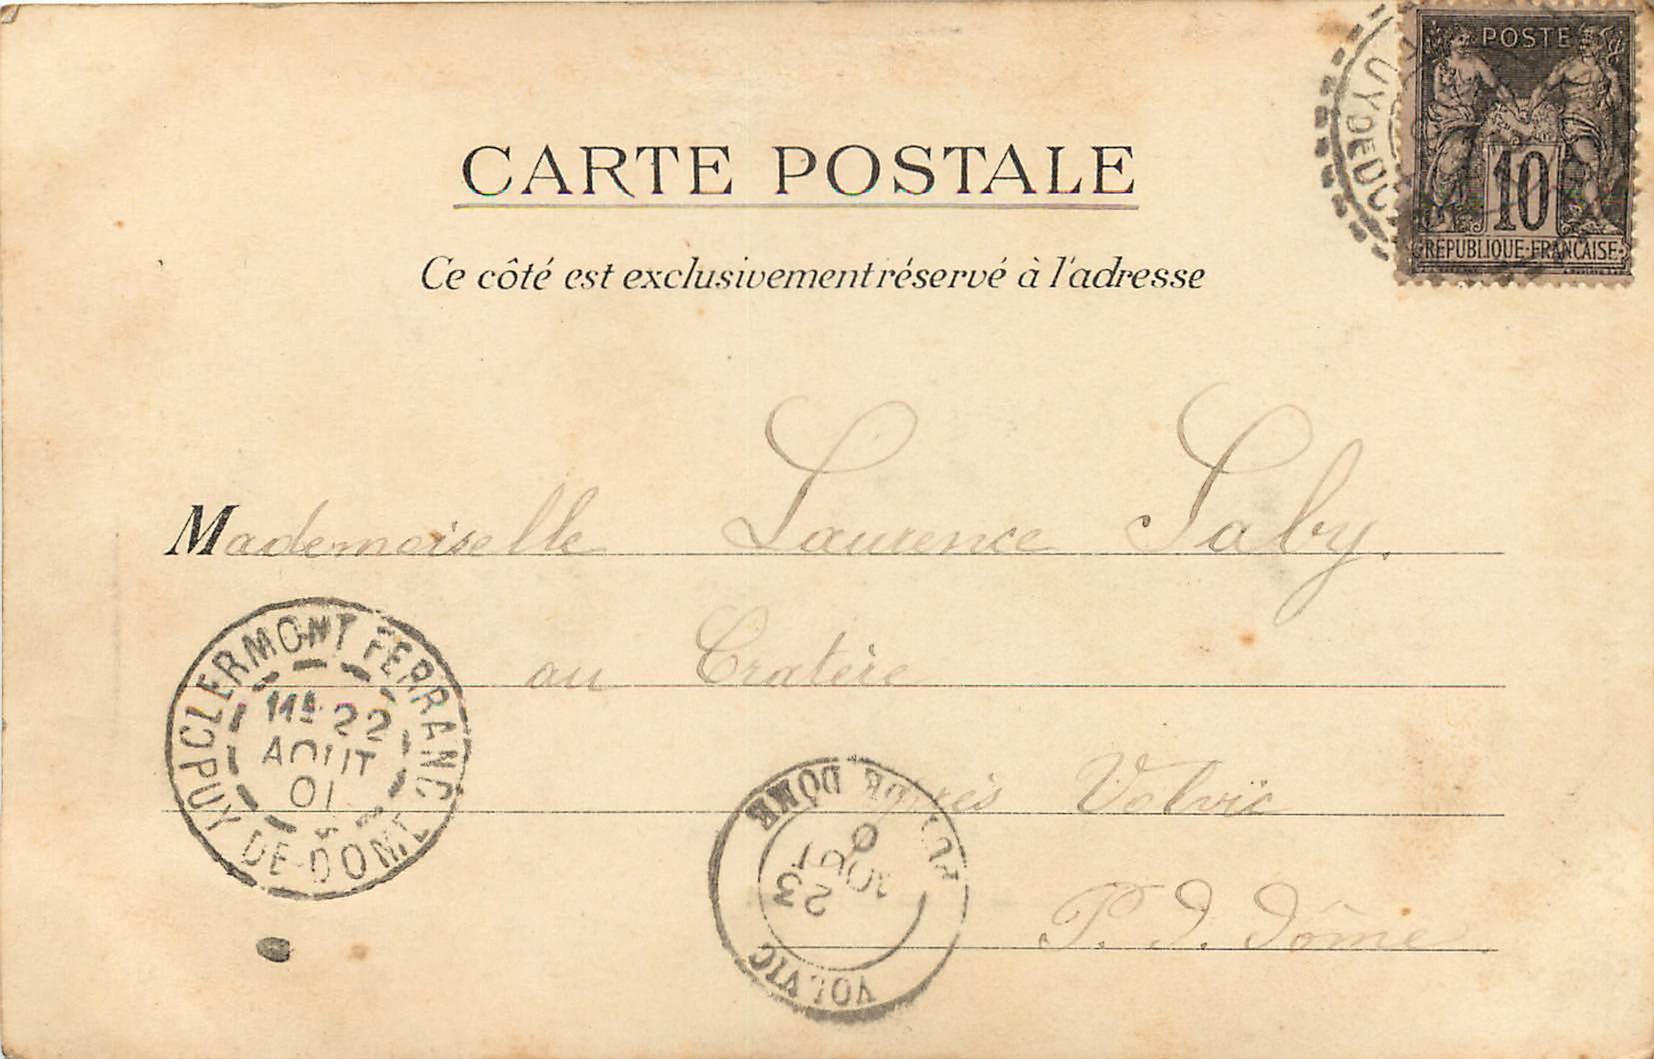 POSTE
10
REPUBLIQUE-FRANCAISE
UY DE DO
CARTE POSTALE
Ce côté est exclusivement réservé à l'adresse
Mademoiselle Laurence Saby.
au Cratère
près Volvic
P. D. Dôme.
CLERMONT FERRAND
PUY DE DOME
22
AOUT
01
VOLVIC
PUY DE DOME
23
AOUT